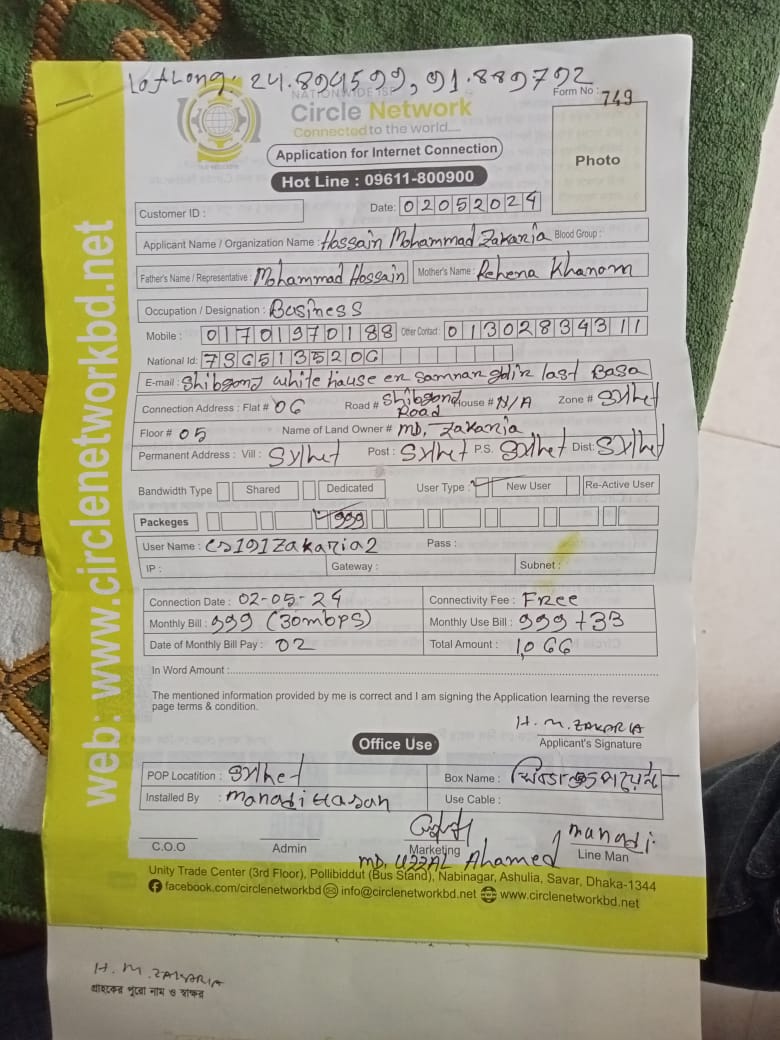 Lat Long: 24.894599, 91.889792
NATIONWIDE ISP
Form No : 749
Circle Network
Connected to the world....
Application for Internet Connection
Photo
Hot Line : 09611-800900
Customer ID :
Date: 02052024
Applicant Name / Organization Name : Hossain Mohammad Zakaria Blood Group :
Father's Name / Representative : Mohammad Hossain Mother's Name : Rehena Khanom
Occupation / Designation : Business
Mobile : 01701970188 Other Contact : 01302834311
National Id: 7365135206
E-mail : Shibgond white hause er last Basa
Connection Address : Flat # 06 Road # Shibgond Road House # N/A Zone # Sylhet
Floor # 05 Name of Land Owner # MD, Zakaria
Permanent Address : Vill : Sylhet Post : Sylhet P.S. Sylhet Dist: Sylhet
Bandwidth Type Shared Dedicated User Type : New User Re-Active User
Packeges 999
User Name : CS191Zakaria2 Pass :
IP : Gateway : Subnet :
Connection Date : 02-05-24 Connectivity Fee : Free
Monthly Bill : 999 (30mbps) Monthly Use Bill : 999+33
Date of Monthly Bill Pay : 02 Total Amount : 1,066
In Word Amount :
The mentioned information provided by me is correct and I am signing the Application learning the reverse
page terms & condition.
H. M. ZAKARIA
Applicant's Signature
Office Use
POP Locatition : Sylhet Box Name :
Installed By : Manadi Hasan Use Cable :
manadi
C.O.O Admin Marketing Line Man
MD. UZZAL Ahamed
Unity Trade Center (3rd Floor), Pollibiddut (Bus Stand), Nabinagar, Ashulia, Savar, Dhaka-1344
facebook.com/circlenetworkbd info@circlenetworkbd.net www.circlenetworkbd.net
web: www.circlenetworkbd.net
H. M. ZAKARIA
গ্রাহকের পুরো নাম ও স্বাক্ষর